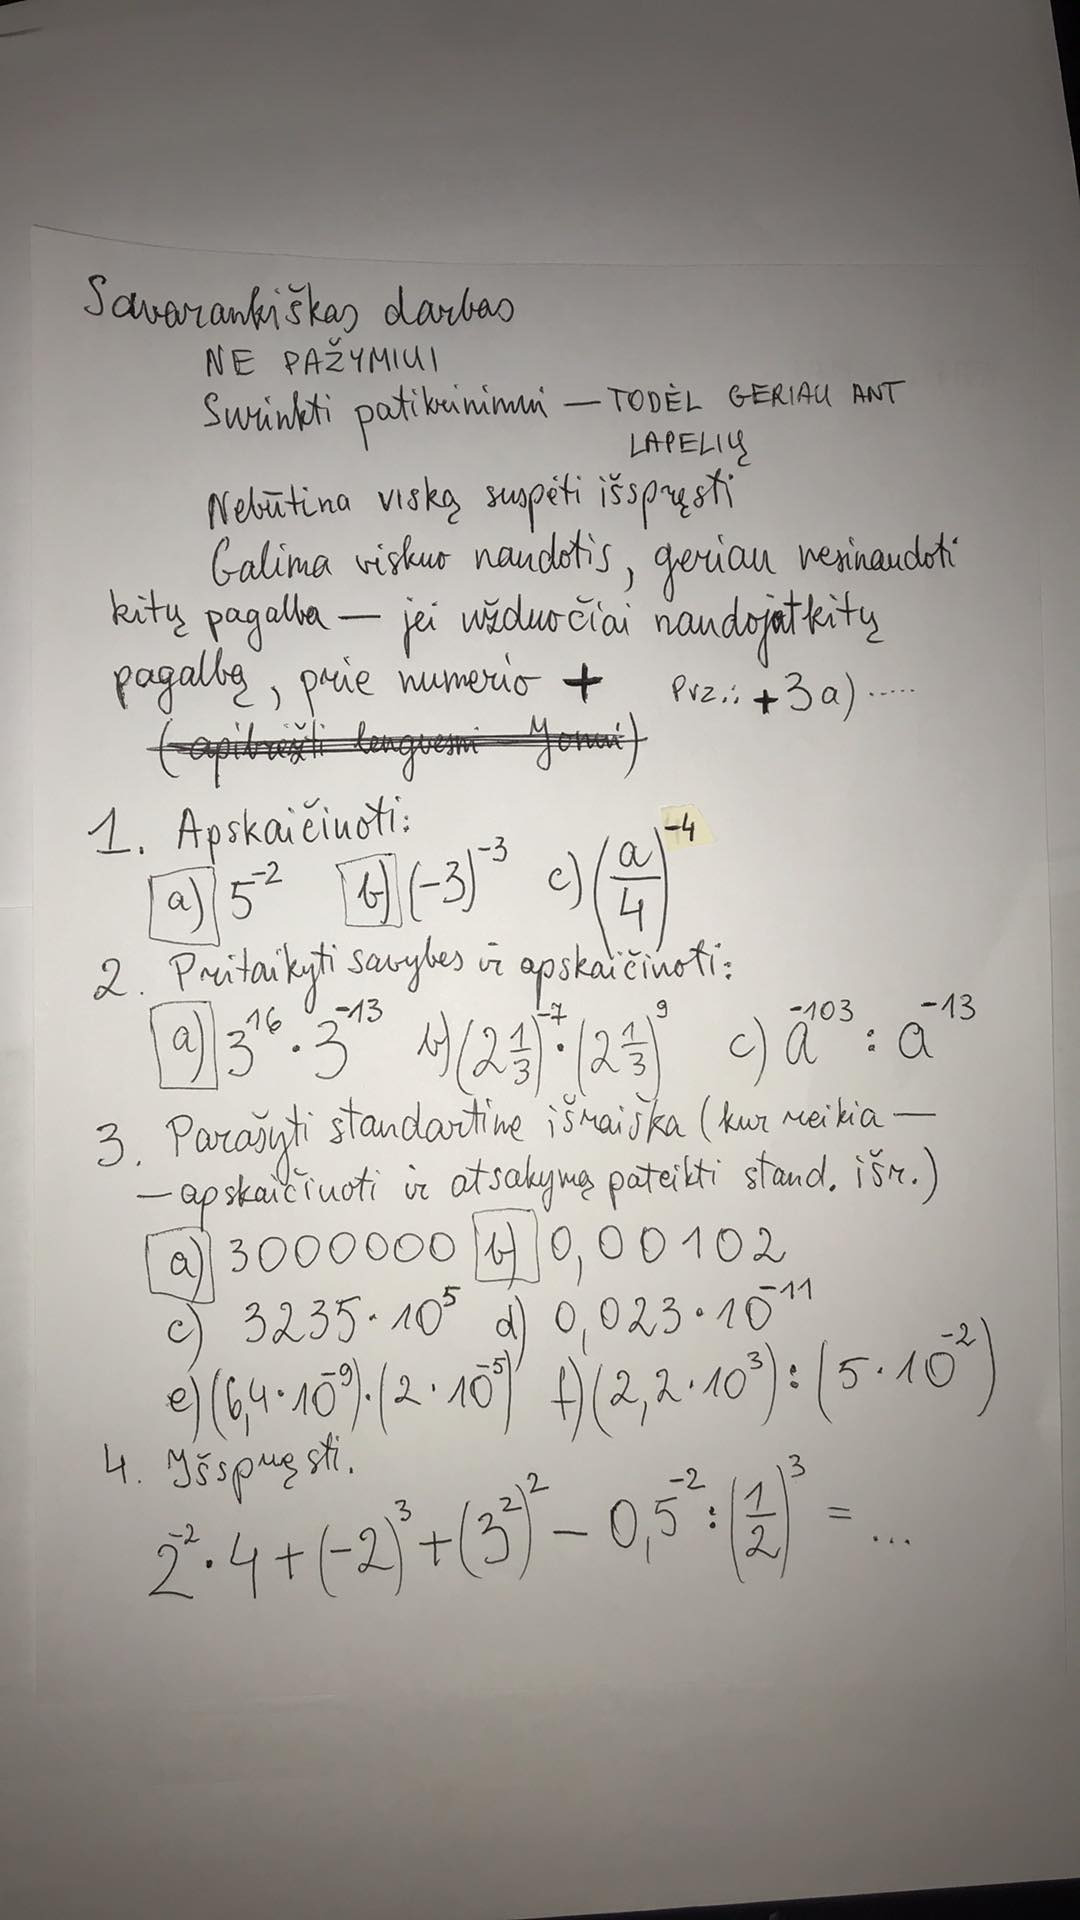 Savarankiškas darbas
NE PAŽYMIUI
Surinkti patikrinimui — TODĖL GERIAU ANT
LAPELIŲ
Nebūtina viską suspėti išspręsti
Galima viskuo naudotis, geriau nesinaudoti
kitų pagalba — jei užduočiai naudojat kitų
pagalbą, prie numerio + Pvz.: +3a) .....
(apibrėžti lengvesni Jonui)
1. Apskaičiuoti:
a) 5⁻² b) (-3)⁻³ c) (a/4)⁻⁴
2. Pritaikyti savybes ir apskaičiuoti:
a) 3¹⁶ · 3⁻¹³ b) (2 1/3)⁻⁷ · (2 1/3)⁹ c) a⁻¹⁰³ : a⁻¹³
3. Parašyti standartine išraiška (kur reikia —
— apskaičiuoti ir atsakymą pateikti stand. išr.)
a) 3000000 b) 0,00102
c) 3235 · 10⁵ d) 0,023 · 10⁻¹¹
e) (6,4 · 10⁻⁹) · (2 · 10⁻⁵) f) (2,2 · 10³) : (5 · 10⁻²)
4. Išspręsti.
2⁻² · 4 + (-2)³ + (3²)² — 0,5⁻² : (1/2)³ = ...